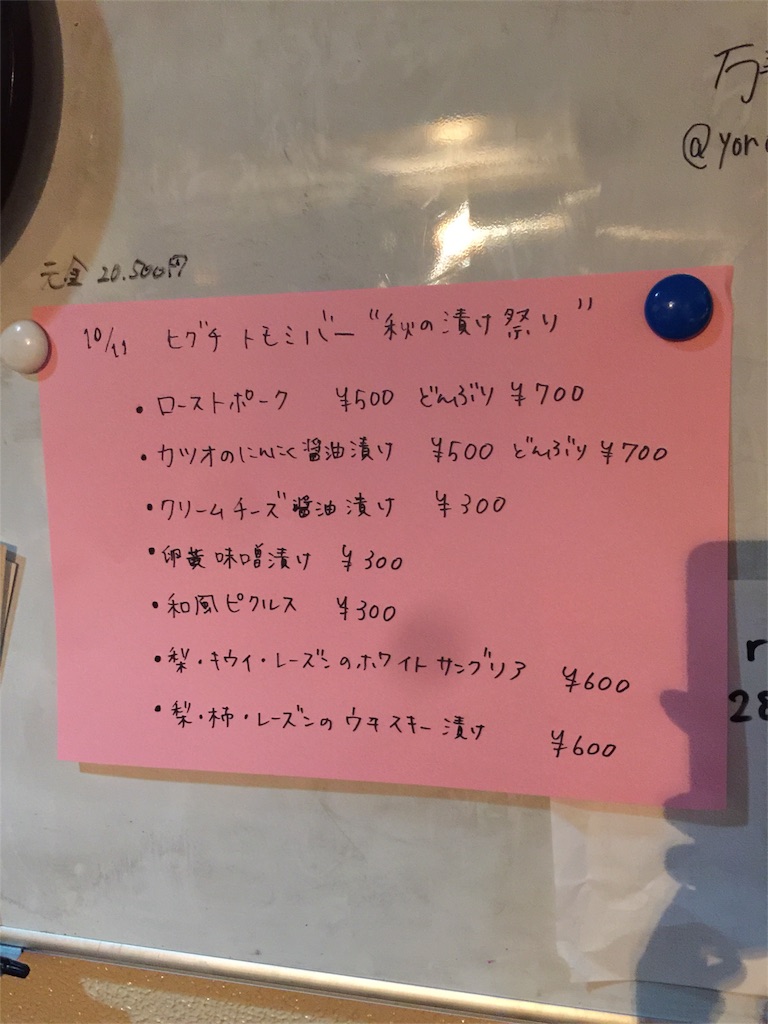 @yor
元金 20.500円
10/11 ヒグチトモミバー“秋の漬け祭り”
・ローストポーク ¥500 どんぶり ¥700
・カツオのにんにく醤油漬け ¥500 どんぶり ¥700
・クリームチーズ醤油漬け ¥300
・卵黄味噌漬け ¥300
・和風ピクルス ¥300
・梨・キウイ・レーズンのホワイトサングリア ¥600
・梨・柿・レーズンのウヰスキー漬け ¥600
r
28